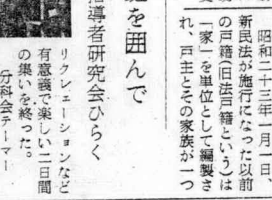 昭和二十三年一月一日、
新民法が施行になった以前
の戸籍(旧法戸籍という)は
「家」を単位として編製さ
れ、戸主とその家族が一つ
を囲んで
指導者研究会ひらく
リクレェーションなど
有意義で楽しい二日間
の集いを終った。
分科会テーマー